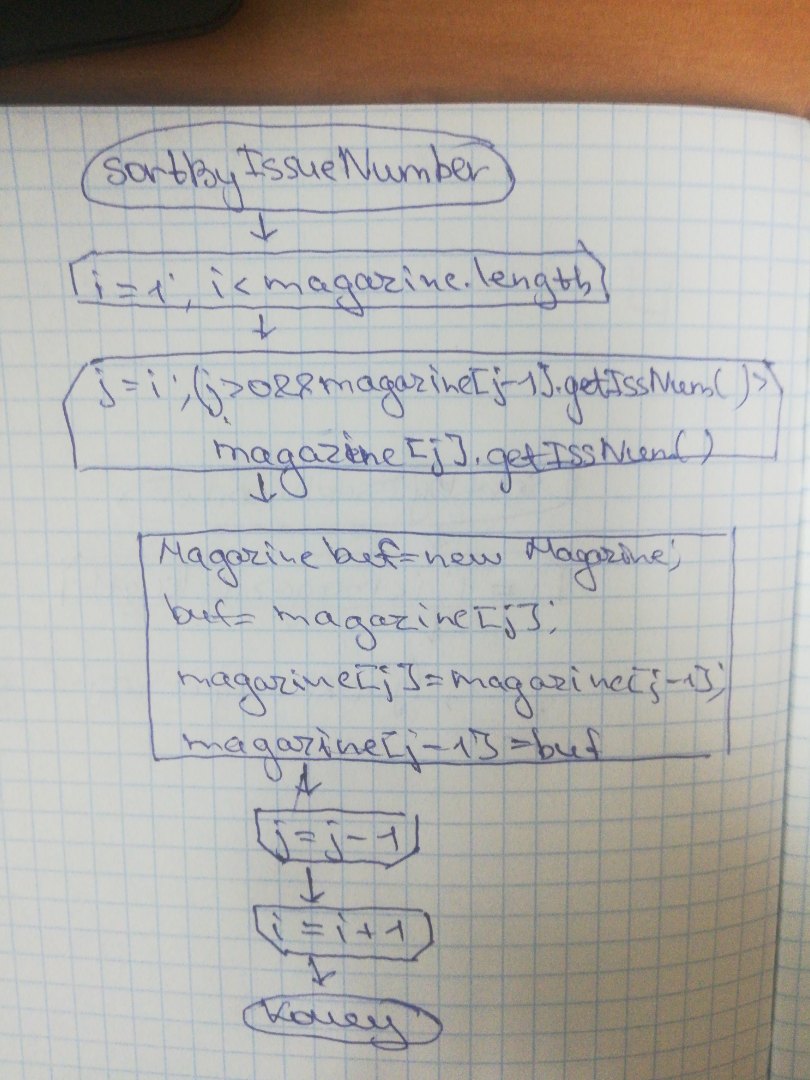 sortByIssueNumber
i = 1; i < magazine.length
j = i; (j > 0 && magazine[j-1].getIssNum() >
magazine[j].getIssNum()
Magazine buf = new Magazine;
buf = magazine[j];
magazine[j] = magazine[j-1];
magazine[j-1] = buf
j = j - 1
i = i + 1
Конец